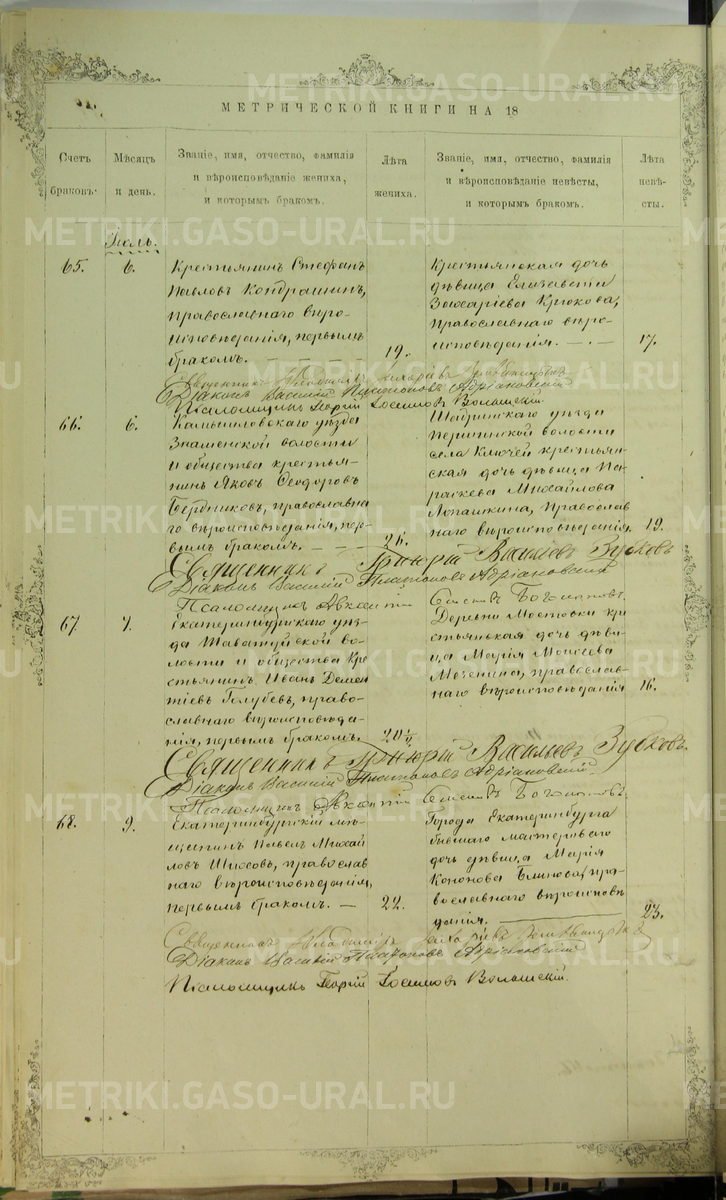 METRIKI.GASO-URAL.RU
МЕТРИЧЕСКОЙ КНИГИ НА 18
Счетъ браковъ.
Мѣсяцъ и день.
Званіе, имя, отчество, фамилія
и вѣроисповѣданіе жениха,
и которымъ бракомъ.
Лѣта жениха.
Званіе, имя, отчество, фамилія
и вѣроисповѣданіе невѣсты,
и которымъ бракомъ.
Лѣта невѣ-
сты.
Іюль.
65.
6.
Крестьянинъ Стефанъ
Павловъ Кондрашинъ,
православнаго вѣро-
исповѣданія, первымъ
бракомъ.
19.
Крестьянская дочь
дѣвица Елизавета
Захаріева Крюкова,
православнаго вѣро-
исповѣданія.
17.
Священникъ Владиміръ
Діаконъ Василій Платоновъ Адріановскій
Псаломщикъ Георгій Іосифовъ Волошскій.
66.
6.
Камышловскаго уѣзда
Знаменской волости
и общества крестья-
нинъ Яковъ Ѳеодоровъ
Бердниковъ, православна
го вѣроисповѣданія, пер-
вымъ бракомъ.
26.
Шадринскаго уѣзда
волости
села Ключей крестьян-
ская дочь дѣвица Па-
раскева Михайлова
Лопаткина, православ
наго вѣроисповѣданія.
19.
Священникъ Григорій Васильевъ Зубковъ
Діаконъ Василій Платоновъ Адріановскій
Псаломщикъ
67.
7.
Екатеринбургскаго уѣз-
да Таватуйской во-
лости и общества кре
стьянинъ Иванъ Демен
тіевъ Голубевъ, право-
славнаго вѣроисповѣда-
нія, первымъ бракомъ.
20
Деревни Мостовки кре
стьянская дочь дѣви-
ца Марія Моисеева
православ-
наго вѣроисповѣданія
16.
Священникъ Григорій Васильевъ Зубковъ.
Діаконъ Василій Платоновъ Адріановскій
Псаломщикъ
68.
9.
Екатеринбургскій мѣ-
щанинъ Павелъ Михай
ловъ православ
наго вѣроисповѣданія,
первымъ бракомъ.
22.
Города Екатеринбурга
бывшаго мастероваго
дочь дѣвица Марія
Кононова Блинова, пра-
вославнаго вѣроисповѣ
данія.
23.
Священникъ Владиміръ
Діаконъ Василій Платоновъ Адріановскій
Псаломщикъ Георгій Іосифовъ Волошскій.